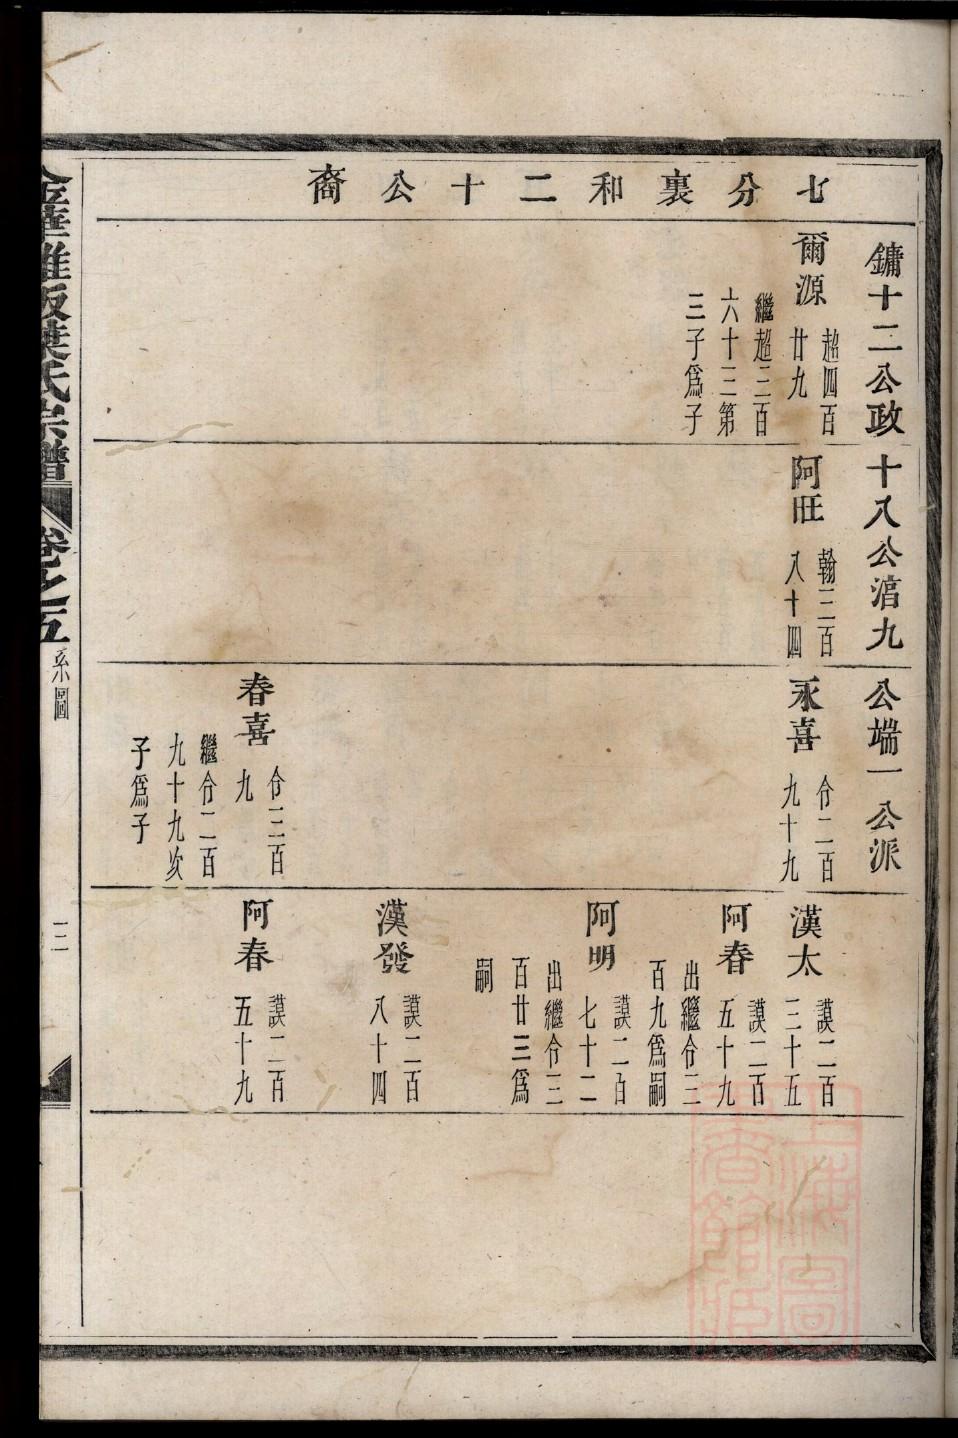 七分裏和二十公裔
鏞十二公政十八公涫九公端一公派
爾源
超四百
廿九
繼超三百
六十三第
三子爲子
阿旺
翰三百
八十四
永喜
令二百
九十九
春喜
令三百
九
繼令二百
九十九次
子爲子
漢太
謨二百
三十五
阿春
謨二百
五十九
出繼令三
百九爲嗣
阿明
謨二百
七十二
出繼令三
百廿三爲
嗣
漢發
謨二百
八十四
阿春
謨二百
五十九
金華雅畈葉氏宗譜
卷之五
系圖
三
上海圖
書館藏